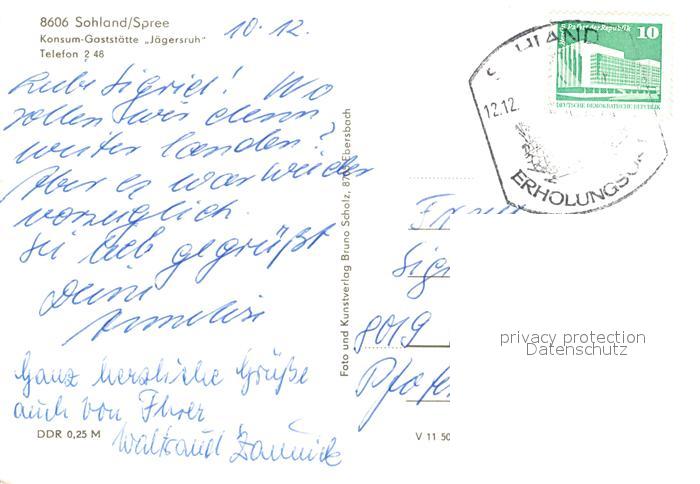 8606 Sohland/Spree
Konsum-Gaststätte „Jägersruh"
Telefon 2 48
10. 12.
Liebe Sigrid! Wo
sollen wir denn
weiter landen?
Aber es war wieder
vorzüglich.
Sei lieb gegrüßt
Deine
Annelise
Ganz herzliche Grüße
auch von Ihrer
Waltraud
DDR 0,25 M
Foto und Kunstverlag Bruno Scholz, Ebersbach
V 11 50
10
Palast der Republik
DEUTSCHE DEMOKRATISCHE REPUBLIK
SOHLAND
12.12.
ERHOLUNGSO
Frau
Sig
8019
privacy protection
Datenschutz